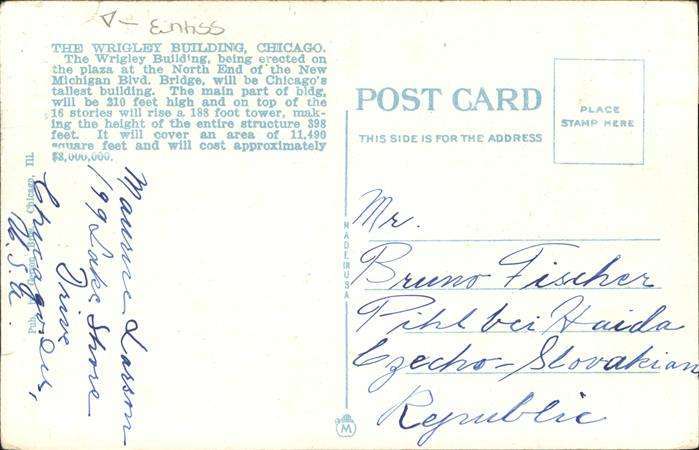 THE WRIGLEY BUILDING, CHICAGO.
The Wrigley Building, being erected on
the plaza at the North End of the New
Michigan Blvd. Bridge, will be Chicago's
tallest building. The main part of bldg,
will be 210 feet high and on top of the
16 stories will rise a 188 foot tower, mak-
ing the height of the entire structure 398
feet. It will cover an area of 11,490
square feet and will cost approximately
$8,000,000.
Larson
199 Lake Shore
Drive
Chicago, Ill,
U.S.A.
Chicago, Ill.
MADE IN USA
POST CARD
THIS SIDE IS FOR THE ADDRESS
PLACE
STAMP HERE
Mr.
Bruno Fischer
Pihl bei Haida
Czecho-Slovakian
Republic
M